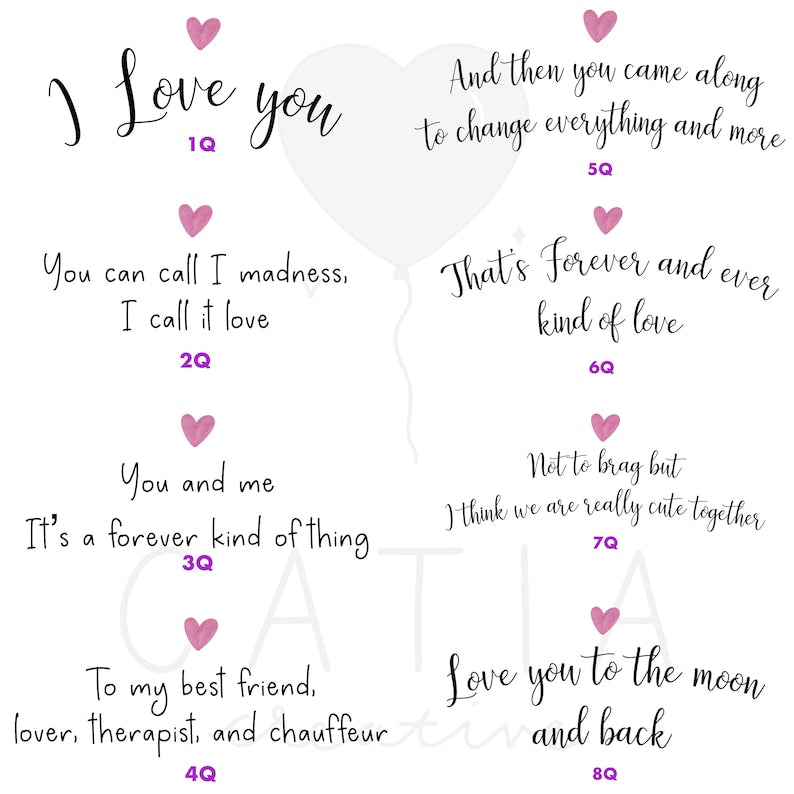 I Love you
1Q
You can call I madness,
I call it love
2Q
You and me
It's a forever kind of thing
3Q
To my best friend,
lover, therapist, and chauffeur
4Q
And then you came along
to change everything and more
5Q
That's Forever and ever
kind of love
6Q
Not to brag but
I think we are really cute together
7Q
Love you to the moon
and back
8Q
CATIA
creative